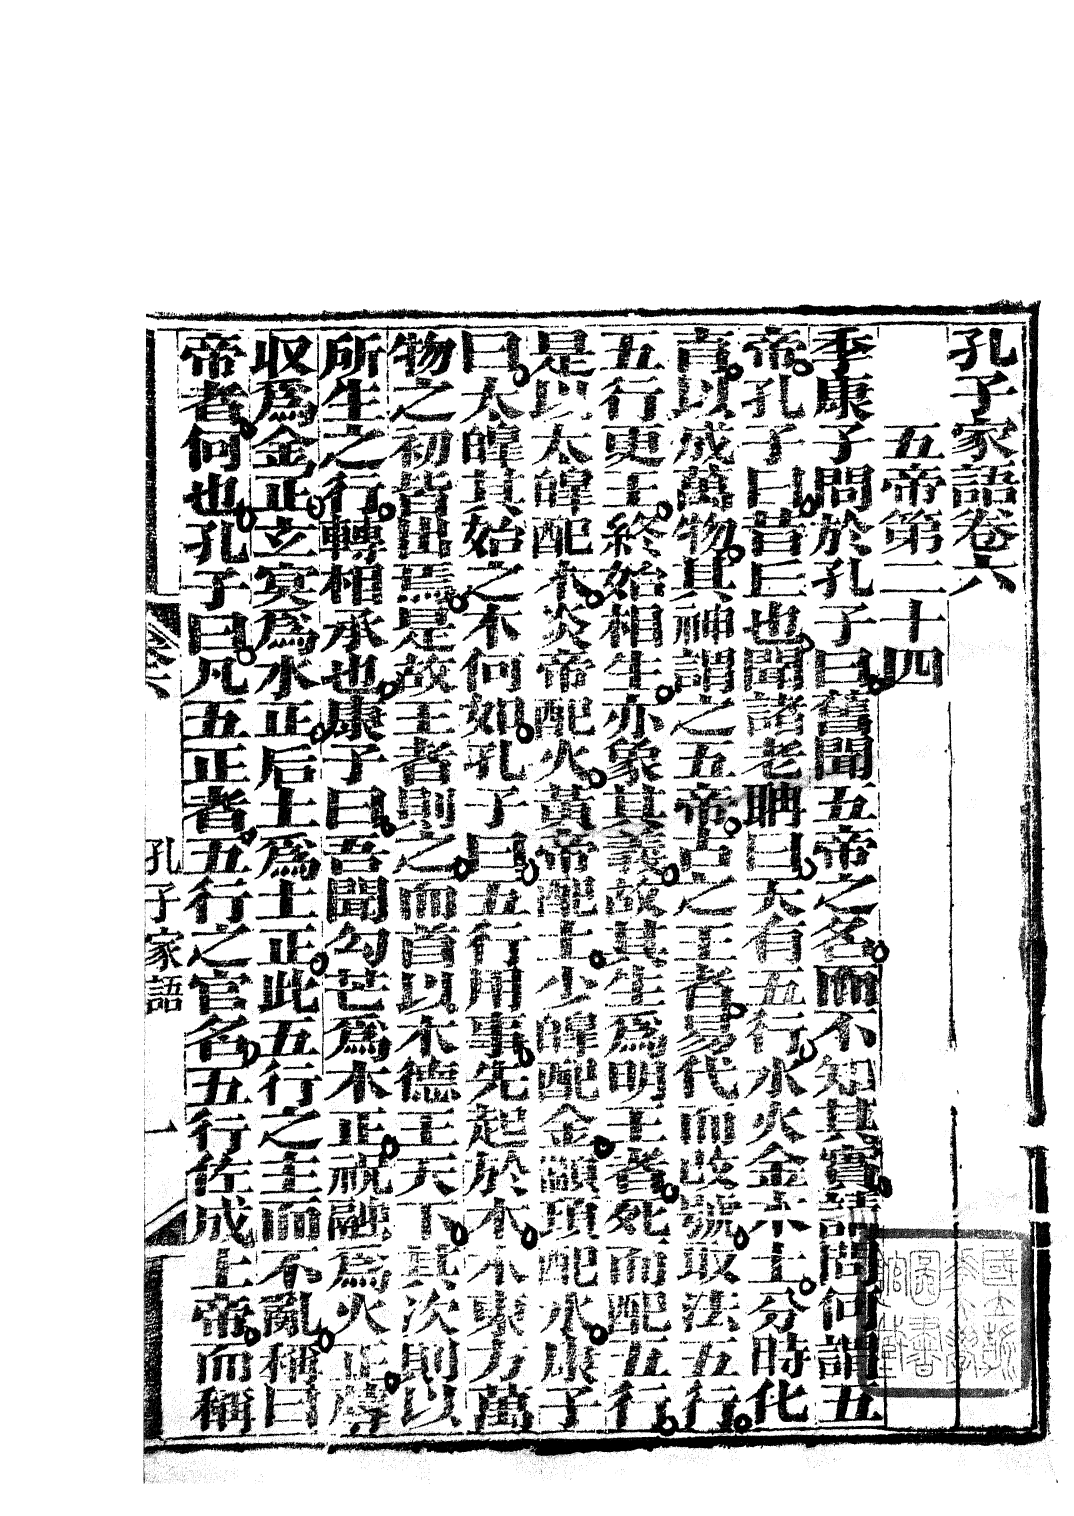 孔子家語卷六
五帝第二十四
季康子問於孔子曰舊聞五帝之名而不知其實請問何謂五
帝孔子曰昔丘也聞諸老聃曰天有五行水火金木土分時化
育以成萬物其神謂之五帝古之王者易代而改號取法五行
五行更王終始相生亦象其義故其生爲明王者死而配五行
是以太皞配木炎帝配火黃帝配土少皞配金顓頊配水康子
曰太皞其始之木何如孔子曰五行用事先起於木木東方萬
物之初皆出焉是故王者則之而首以木德王天下其次則以
所生之行轉相承也康子曰吾聞勾芒爲木正祝融爲火正蓐
収爲金正玄冥爲水正后土爲土正此五行之主而不亂稱曰
帝者何也孔子曰凡五正者五行之官名五行佐成上帝而稱
卷六
孔子家語
一